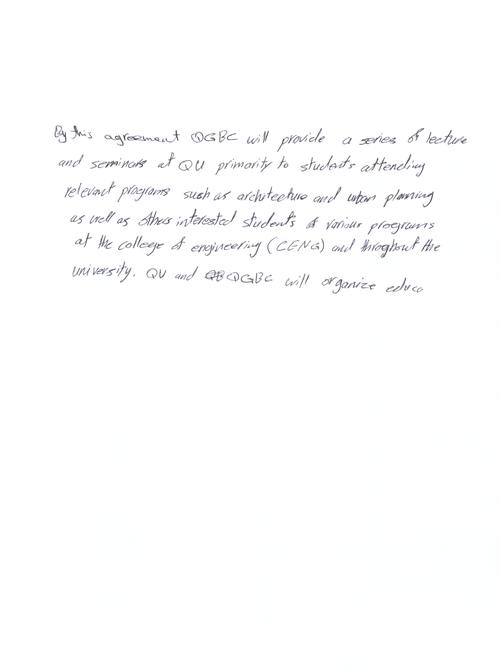 By this agreement QGBC will provide a series of lecture
and seminars at QU primarity to students attending
relevant programs such as architecture and urban planning
as well as others interested students of various programs
at the college of engineering (CENG) and throghout the
university. QU and QBQGBC will organize educa